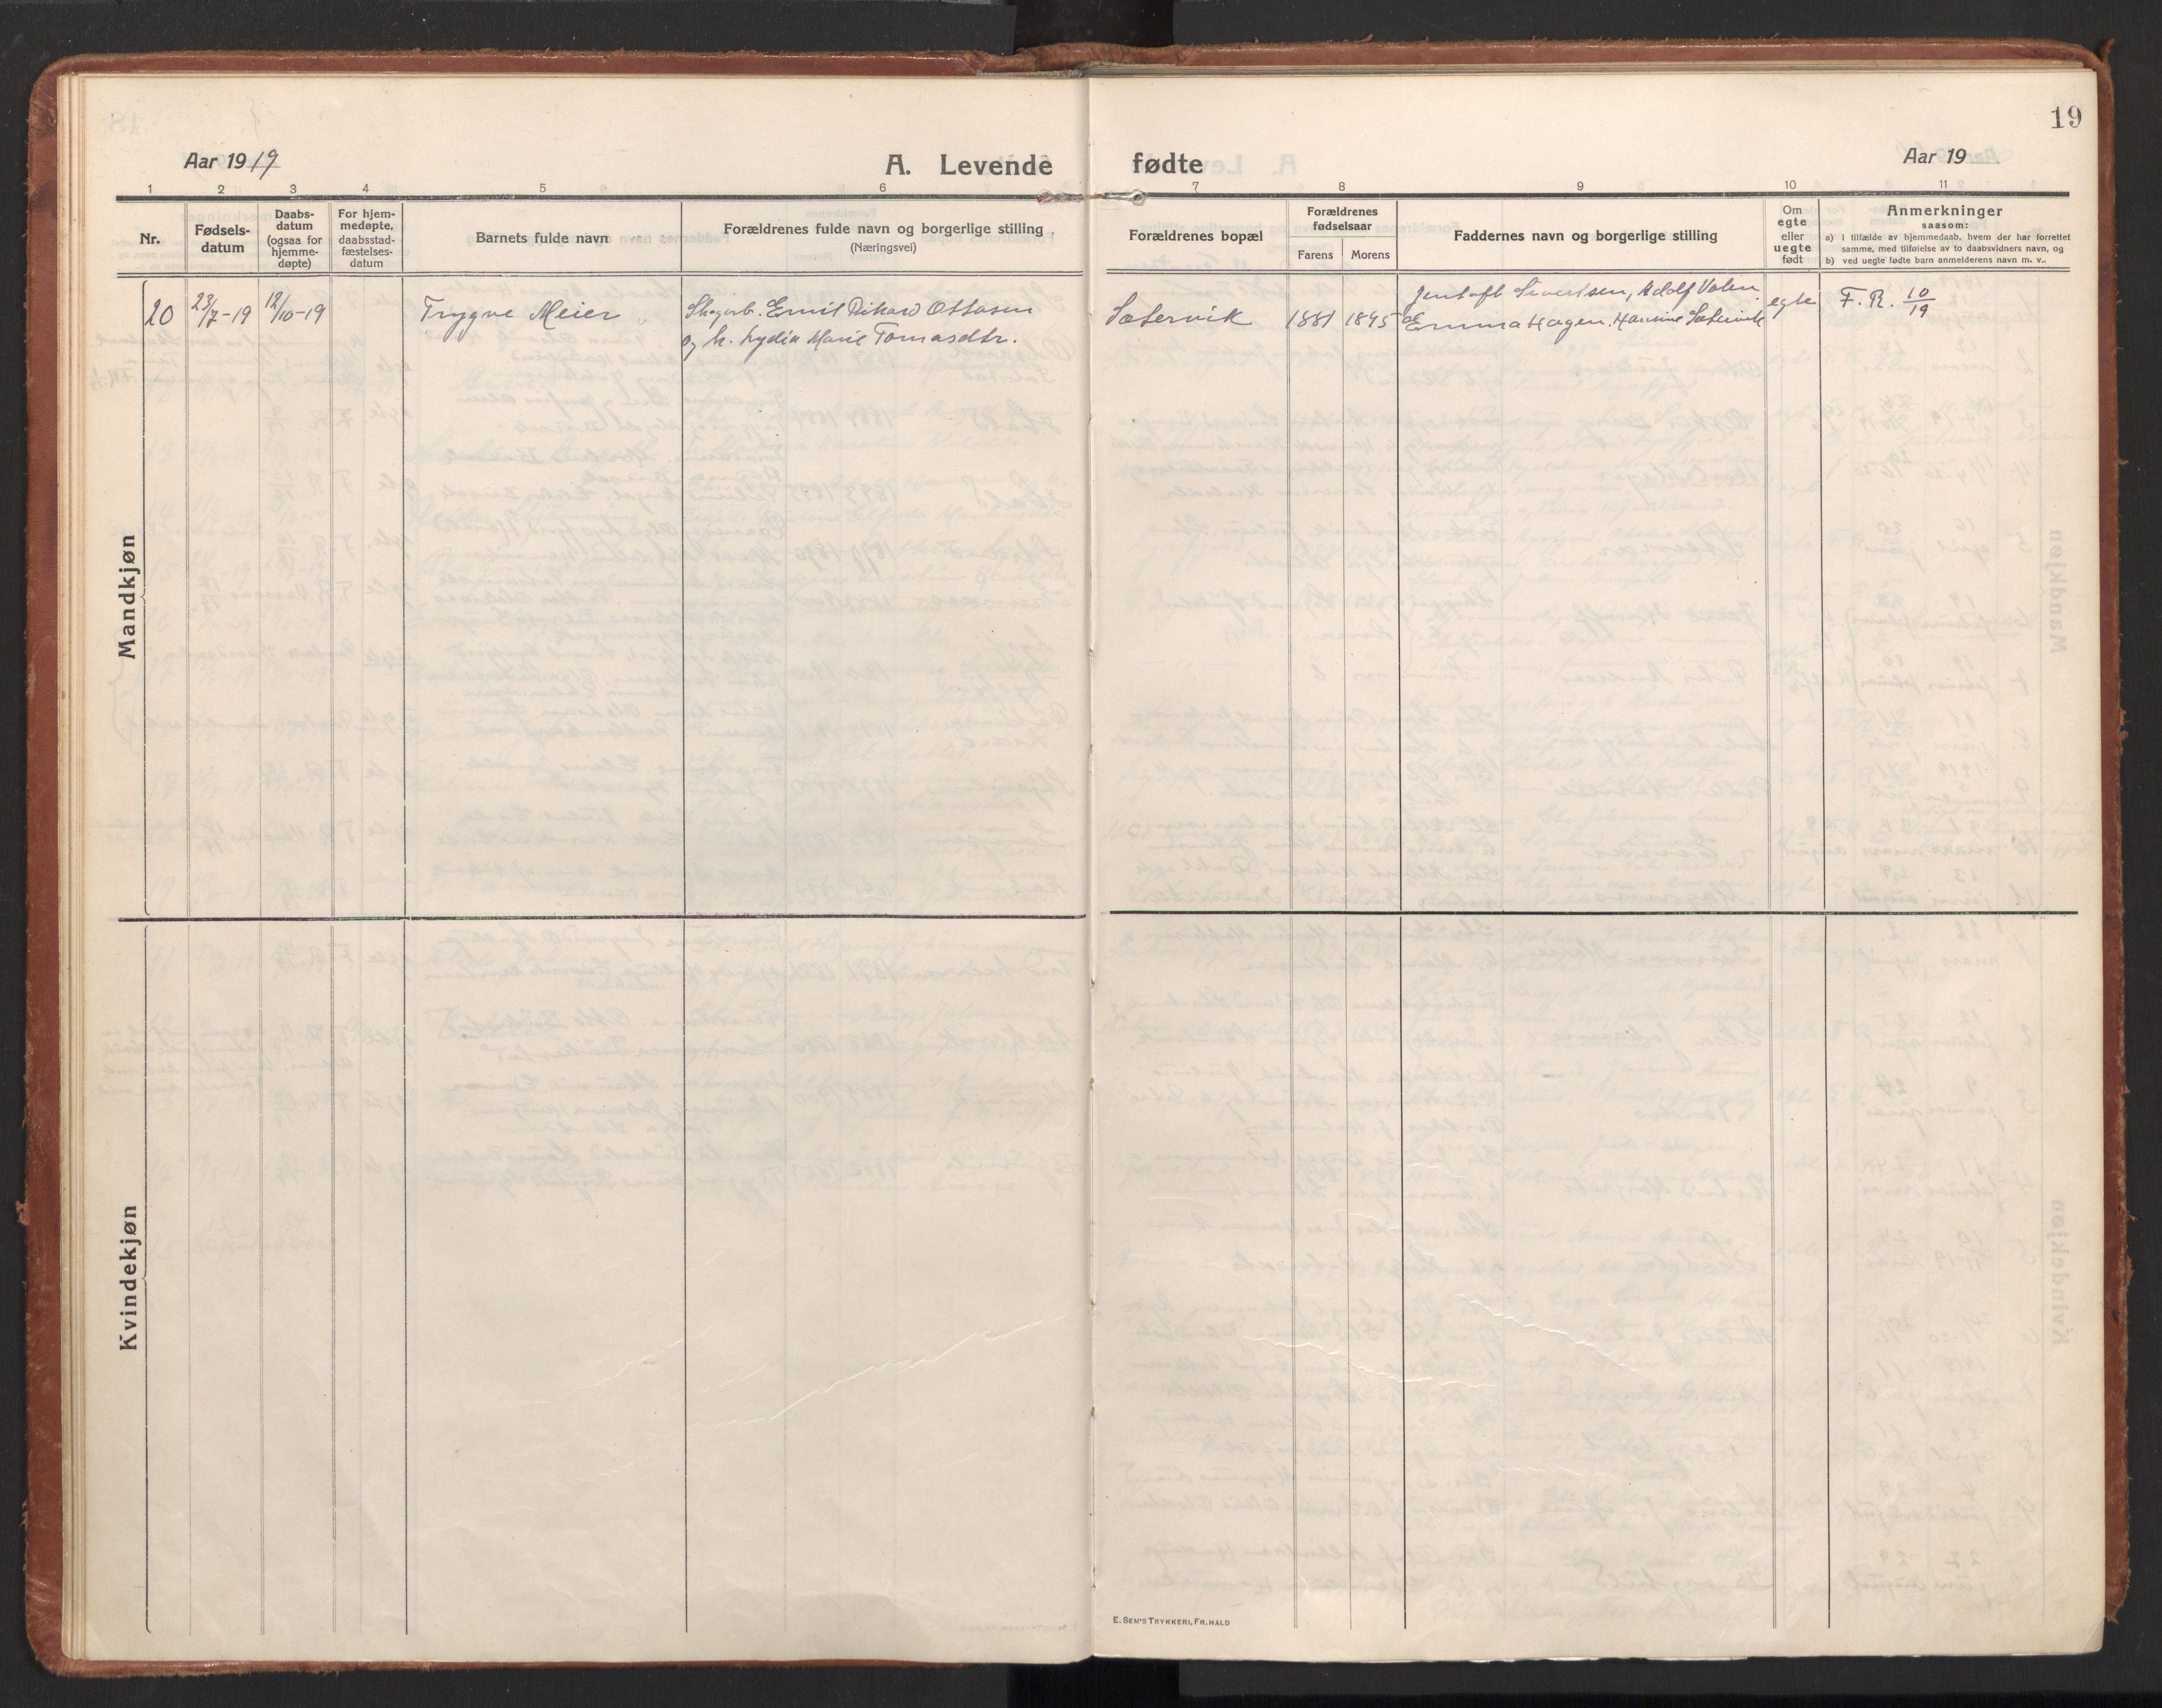 19
Aar 1919
A. Levende fødte
Aar 19
1 2 3 4 5 6 7 8 9 10 11
Nr.
Fødsels-
datum
Daabs-
datum
(ogsaa for
hjemme-
døpte)
For hjem-
medøpte,
daabsstad-
fæstelses-
datum
Barnets fulde navn
Forældrenes fulde navn og borgerlige stilling
(Næringsvei)
Forældrenes bopæl
Forældrenes
fødselsaar
Farens Morens
Faddernes navn og borgerlige stilling
Om
egte
eller
uegte
født
Anmerkninger
saasom:
a) i tilfælde av hjemmedaab, hvem der har forrettet
samme, med tilføielse av to daabsvidners navn, og
b) ved uegte fødte barn anmelderens navn m. v..
Mandkjøn
20 23/7-19 12/10-19 Trygve Meier
Skogarb. Emil Rikard Ottosen
og h. Lydia Marie Tomasdtr.
Sætervik 1881 1895
Jentoft Sivertsen, Adolf Valen
Emma Hagen. Hansine Sætervik
egte F. R. 10/19
Kvindekjøn
E. SEM'S TRYKKERI, FR. HALD